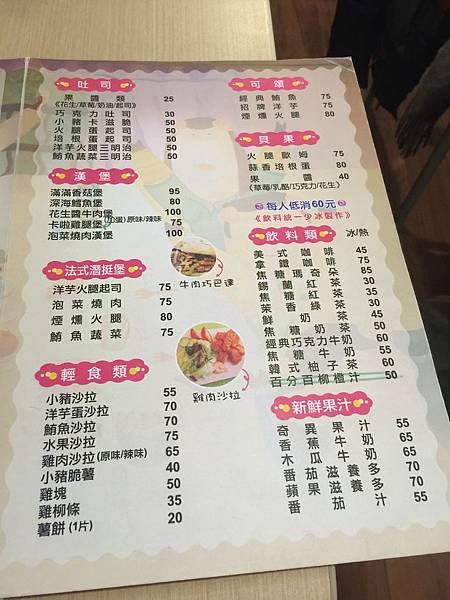 吐司
果醬類 25
《花生/草莓/奶油/起司》
巧克力吐司 30
小豬卡滋脆 50
火腿蛋起司 50
培根蛋起司 50
洋芋火腿三明治 50
鮪魚蔬菜三明治 50
漢堡
滿滿香菇堡 95
深海鱈魚堡 80
花生醬牛肉堡 100
卡啦雞腿堡(加蛋)原味/辣味 100
泡菜燒肉漢堡 100
法式潛挺堡
洋芋火腿起司 75
泡菜燒肉 75
煙燻火腿 80
鮪魚蔬菜 75
牛肉巧巴達
輕食類
小豬沙拉 55
洋芋蛋沙拉 70
鮪魚沙拉 70
水果沙拉 75
雞肉沙拉(原味/辣味) 65
小豬脆薯 40
雞塊 50
雞柳條 35
薯餅(1片) 20
雞肉沙拉
可頌
經典鮪魚 75
招牌洋芋 75
煙燻火腿 80
貝果
火腿歐姆 75
蒜香培根蛋 80
果醬 40
《草莓/乳酪/巧克力/花生》
每人低消60元
《飲料統一少冰製作》
飲料類 冰/熱
美式咖啡 45
拿鐵咖啡 75
焦糖瑪奇朵 85
錫蘭紅茶 30
焦糖紅茶
茉香綠茶
鮮奶茶
焦糖奶茶
經典巧克力牛奶
焦糖牛奶
韓式柚子茶 60
百分百柳橙汁 50
新鮮果汁
奇異果汁 55
香蕉牛奶 65
木瓜牛奶 65
番茄滋養多 70
蘋果滋養多 70
番茄汁 55